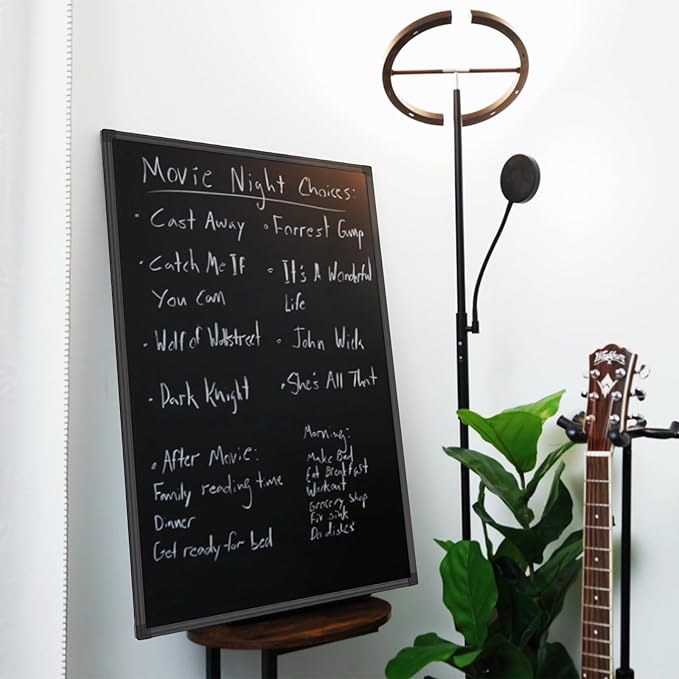 Movie Night Choices:
• Cast Away
• Forrest Gump
• Catch Me If
You Can
• It's A Wonderful
Life
• Wolf of Wallstreet
• John Wick
• Dark Knight
• She's All That
• After Movie:
Family reading time
Dinner
Get ready for bed
Morning:
Make Bed
Eat Breakfast
Workout
Grocery shop
Fix sink
Do dishes
Washburn